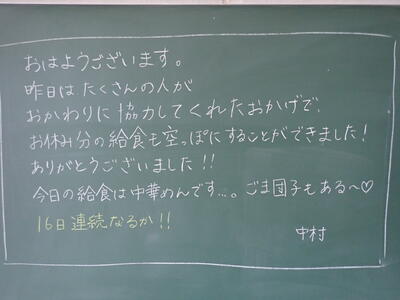 おはようございます。
昨日は たくさんの人が
おかわりに 協力してくれたおかげで、
お休み分の給食も空っぽにすることができました!
ありがとうございました!!
今日の給食は中華めんです...。ごま団子もある〜♡
16日連続なるか!!
中村